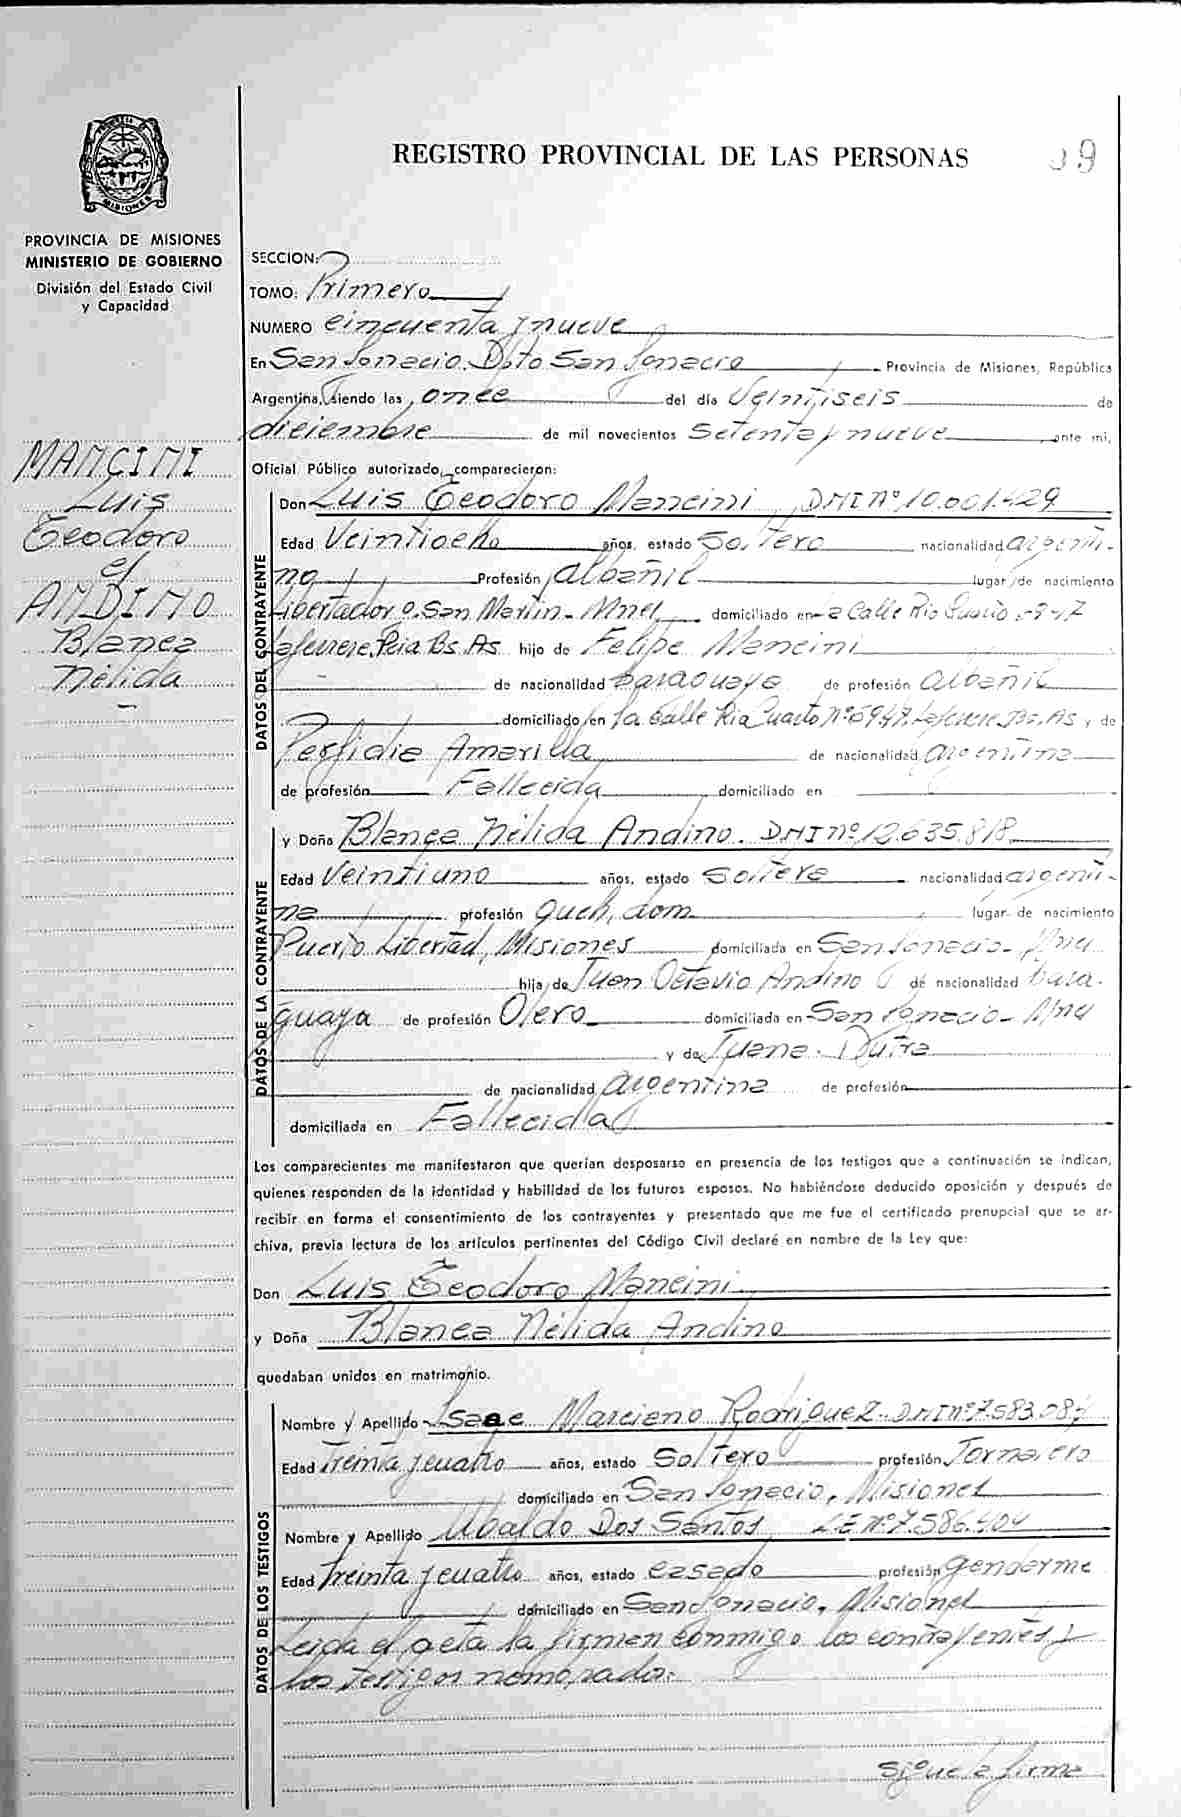 PROVINCIA DE MISIONES
MINISTERIO DE GOBIERNO
División del Estado Civil
y Capacidad
MANCINI
Luis
Teodoro
y
ANDINO
Blanca
Nélida
REGISTRO PROVINCIAL DE LAS PERSONAS
SECCION:
TOMO: Primero
NUMERO cincuenta y nueve
En San Ignacio, Dpto San Ignacio Provincia de Misiones, República
Argentina, siendo las once del día Veintiseis de
diciembre de mil novecientos setenta y nueve ante mi,
Oficial Público autorizado, comparecieron:
DATOS DEL CONTRAYENTE
Don Luis Teodoro Mancini DNI Nº 10.001.429
Edad Veintiocho años, estado Soltero nacionalidad argenti-
no Profesión albañil lugar de nacimiento
Libertador G. San Martin - Mnes domiciliado en la Calle Rio Cuarto 6947
Laferrere, Pcia Bs. As hijo de Felipe Mancini
de nacionalidad paraguaya de profesión albañil
domiciliado en la Calle Rio Cuarto Nº 6947 Laferrere Bs. As, y de
Perfidia Amarilla de nacionalidad argentina
de profesión Fallecida domiciliado en
DATOS DE LA CONTRAYENTE
y Doña Blanca Nélida Andino. DNI Nº 12.635.818
Edad Veintiuno años, estado Soltera nacionalidad argenti-
na profesión queh. dom. lugar de nacimiento
Puerto Libertad, Misiones domiciliada en San Ignacio - Mnes
hija de Juan Octavio Andino de nacionalidad para-
guaya de profesión Olero domiciliada en San Ignacio - Mnes
y de Juana Dutra
de nacionalidad argentina de profesión
domiciliada en Fallecida
Los comparecientes me manifestaron que querían desposarse en presencia de los testigos que a continuación se indican,
quienes responden de la identidad y habilidad de los futuros esposos. No habiéndose deducido oposición y después de
recibir en forma el consentimiento de los contrayentes y presentado que me fue el certificado prenupcial que se ar-
chiva, previa lectura de los artículos pertinentes del Código Civil declaré en nombre de la Ley que:
Don Luis Teodoro Mancini
y Doña Blanca Nélida Andino
quedaban unidos en matrimonio.
DATOS DE LOS TESTIGOS
Nombre y Apellido Isaac Marciano Rodriguez. DNI Nº 7.583.084
Edad Treinta y cuatro años, estado Soltero profesión Jornalero
domiciliado en San Ignacio, Misiones
Nombre y Apellido Ubaldo Dos Santos LE Nº 7.586.404
Edad Treinta y cuatro años, estado casado profesión Gendarme
domiciliado en San Ignacio, Misiones
Leida el acta la firman conmigo los contrayentes y
los testigos nombrados.
Sigue la firma